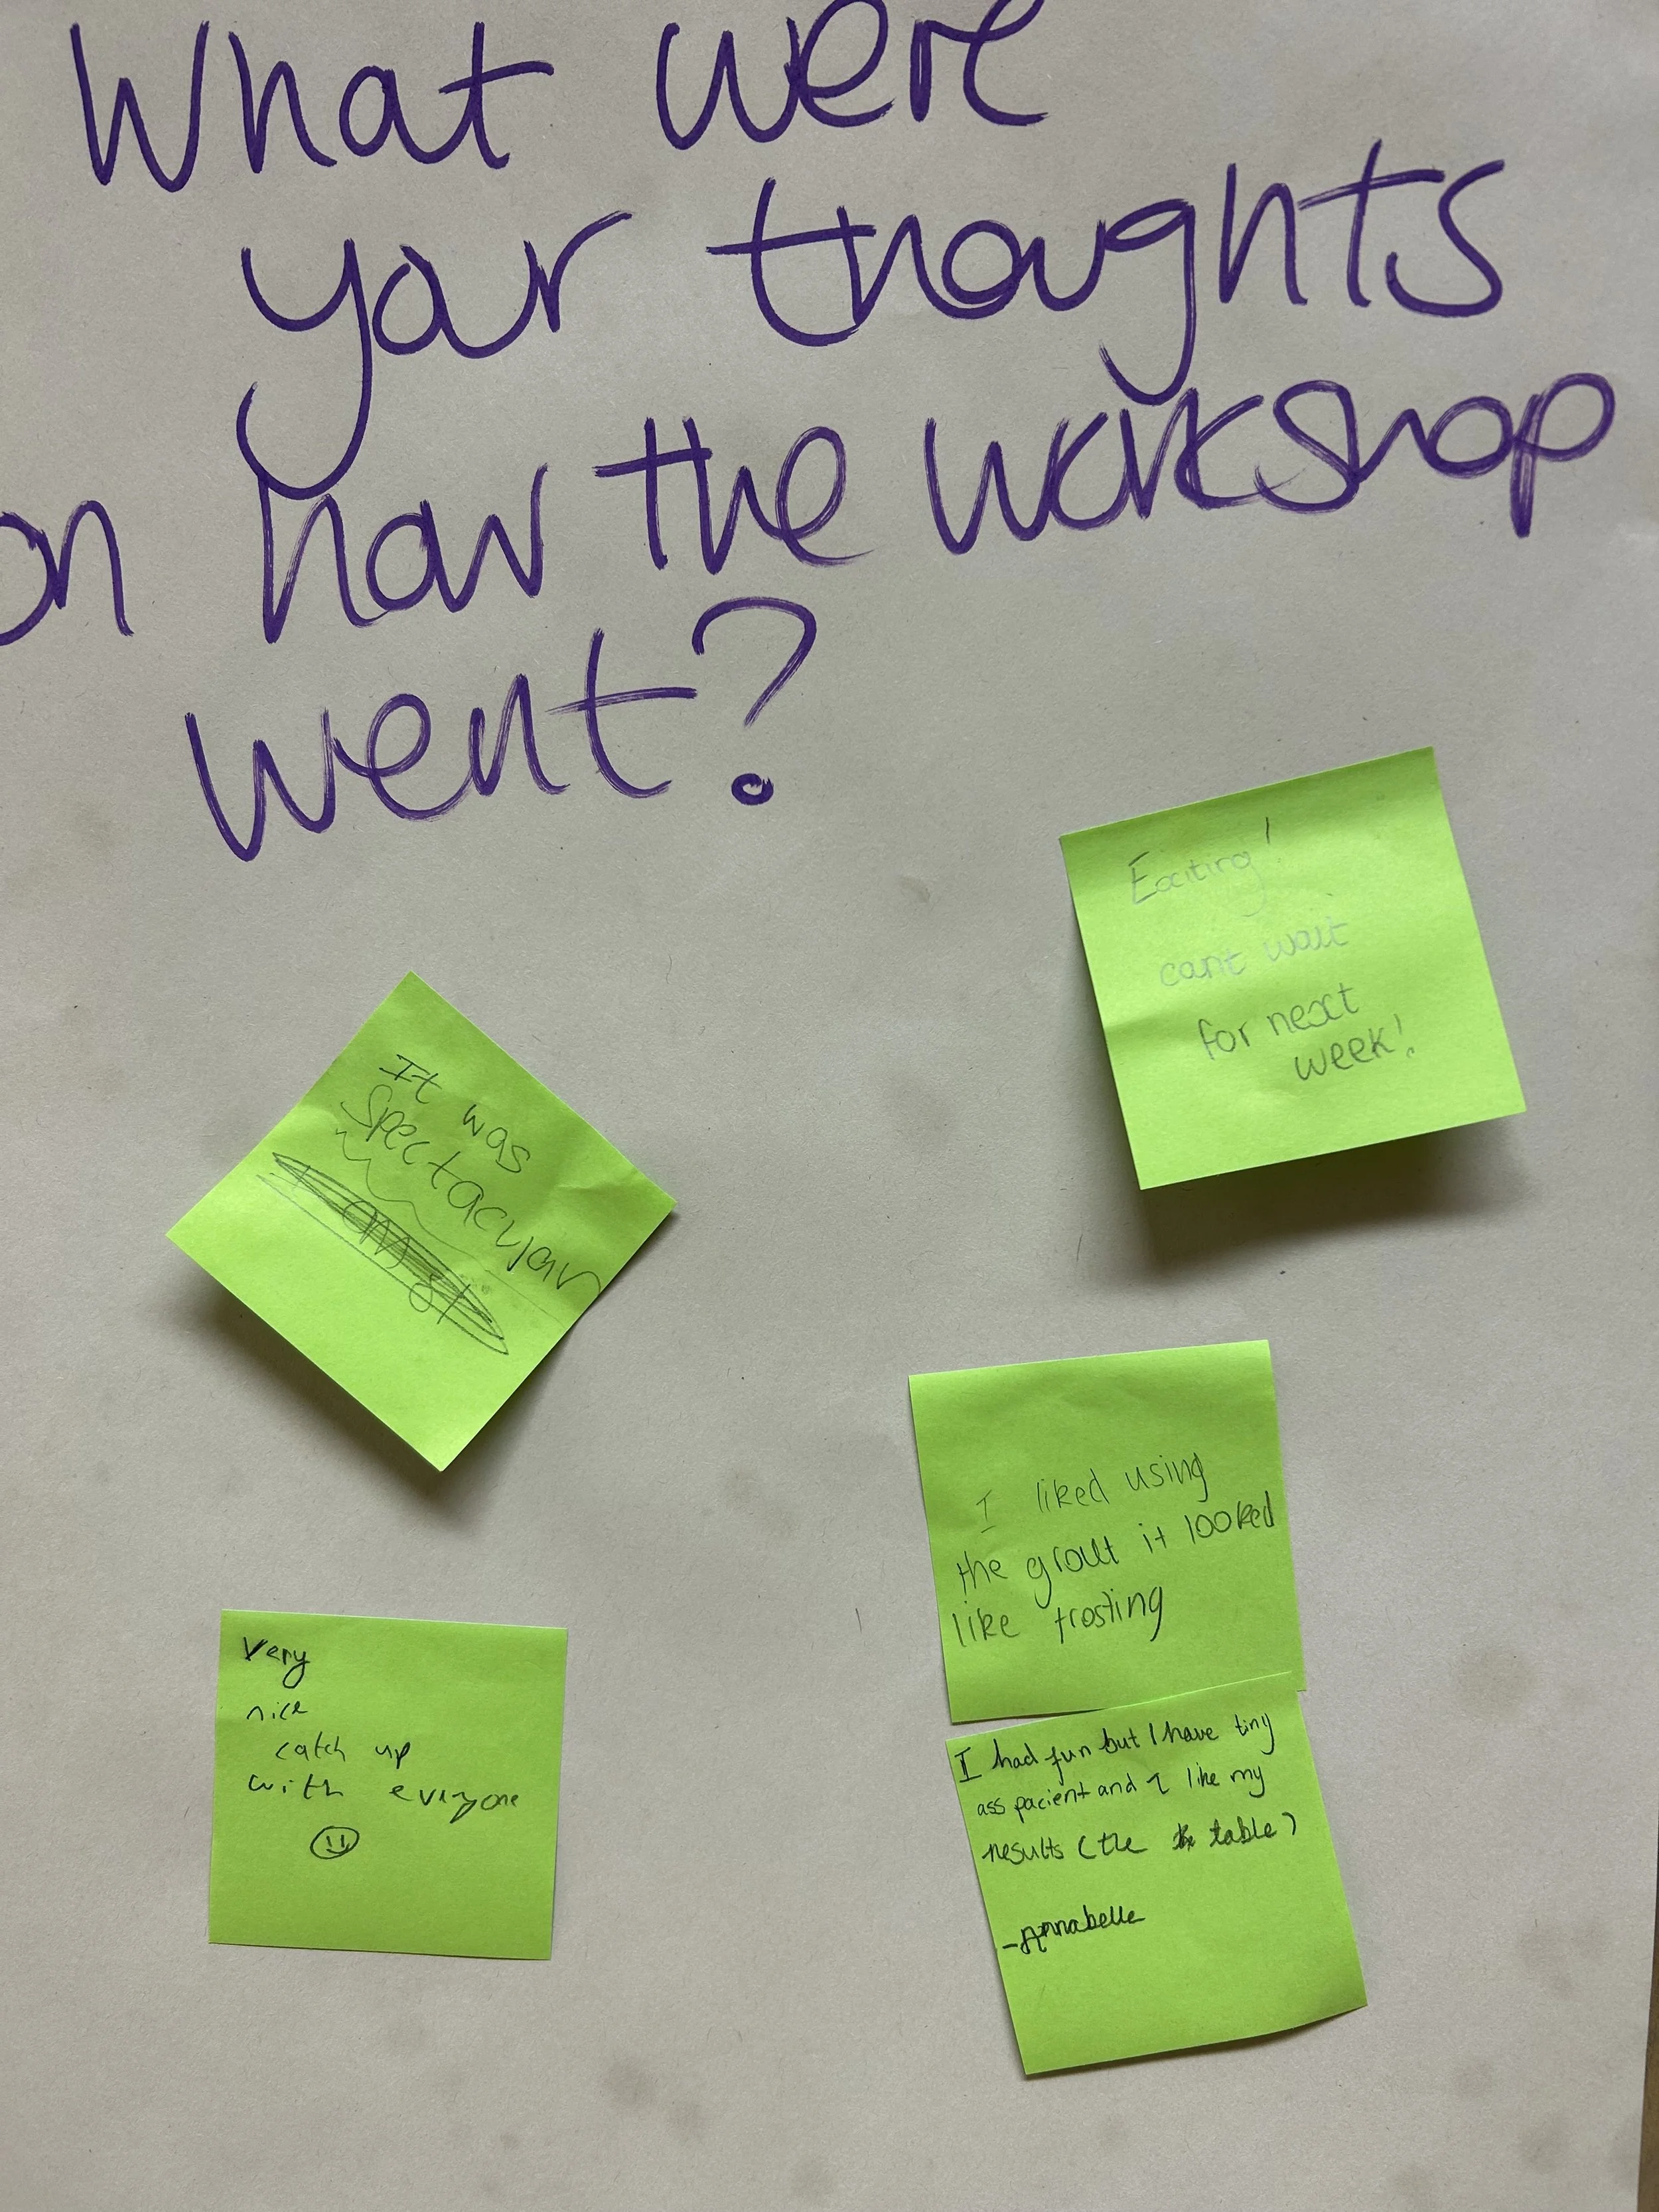 What were
your thoughts
on how the workshop
went?
Exciting!
cant wait
for next
week!
It was
Spectacular
I liked using
the grout it looked
like frosting
Very
nice
catch up
with everyone
I had fun but I have tiny
ass pacient and I like my
results (the table)
-Annabelle